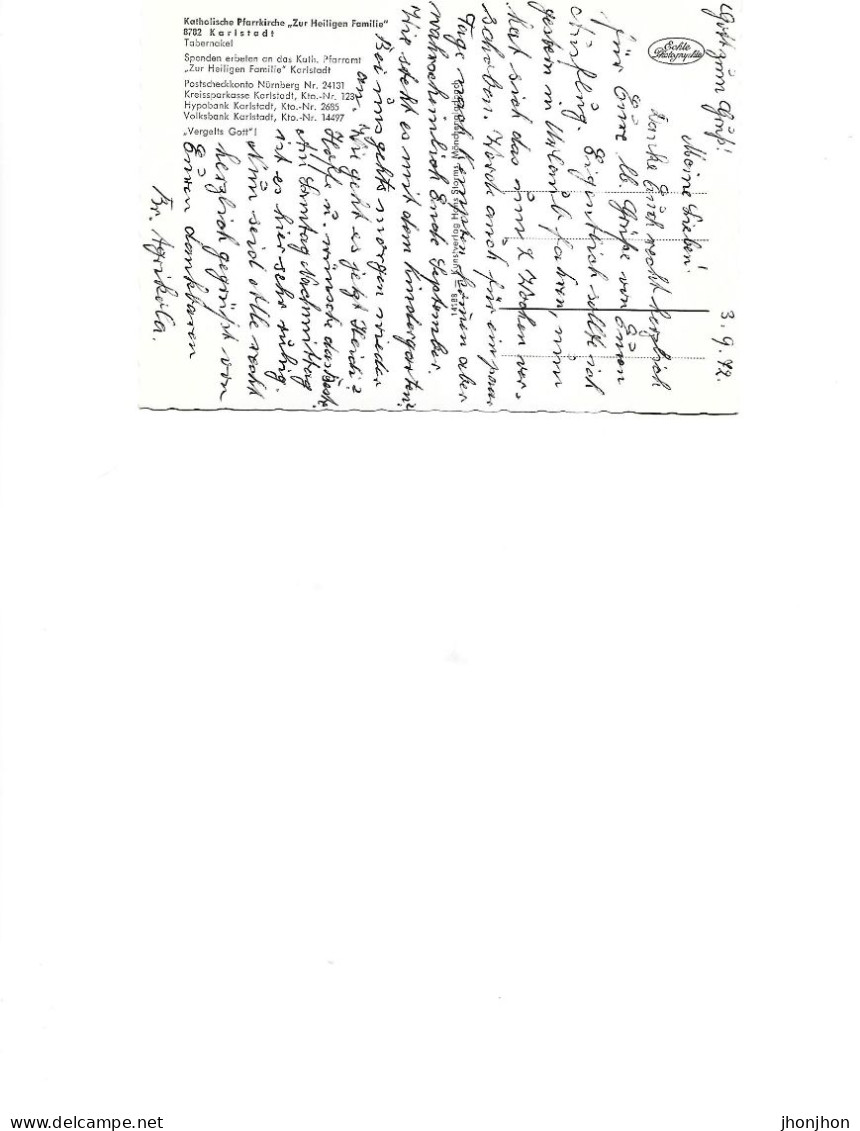 Katholische Pfarrkirche „Zur Heiligen Familie"
8782 Karlstadt
Tabernakel
Spenden erbeten an das Kath. Pfarramt
„Zur Heiligen Familie" Karlstadt
Postscheckkonto Nürnberg Nr. 24131
Kreissparkasse Karlstadt, Kto.-Nr. 123
Hypobank Karlstadt, Kto.-Nr. 2685
Volksbank Karlstadt, Kto.-Nr. 14497
„Vergelts Gott"!
Echte Photographie
Kunstverlag Hans Storms, Mönchengladbach
Gott zum Gruß! 3. 9. 72.
Meine Lieben!
Danke Euch recht herzlich
für Eure lb. Grüße von Eurem
Ausflug. Eigentlich sollte ich
gestern in Urlaub fahren, nun
hat sich das um 2 Wochen ver-
schoben. Werde auch für ein paar
Tage nach Kempten kommen aber
wahrscheinlich Ende September.
Wie steht es mit dem Kindergarten?
Bei uns gehts morgen wieder
an. Wie geht es jetzt Heidi?
Hoffe u. wünsche das Beste.
Am Sonntag Nachmittag
ist es hier sehr ruhig.
Nun seid Alle recht
herzlich gegrüßt von
Eurem dankbaren
Br. Agrikola.
jhonjhon